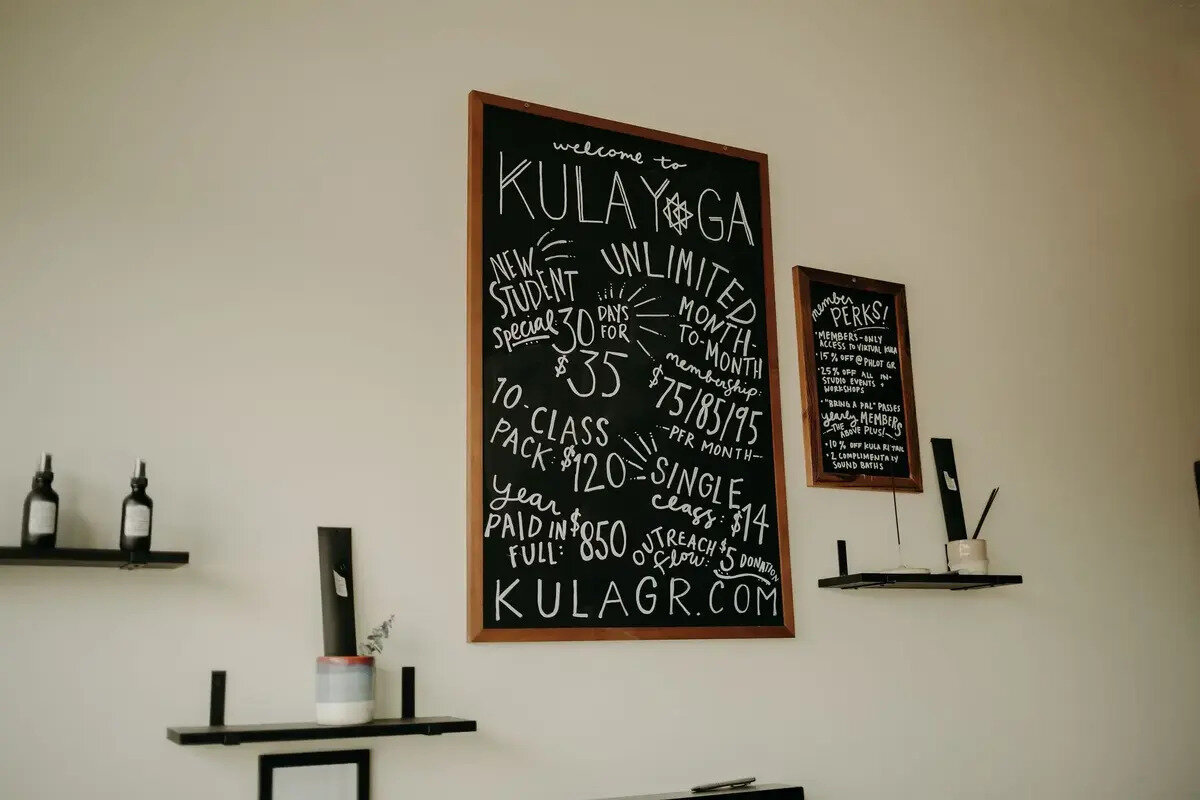 welcome to
KULA YOGA
NEW
STUDENT
special:
30 DAYS
FOR
$35
UNLIMITED
MONTH-
TO-MONTH
membership:
$75/85/95
-PER MONTH-
10-CLASS
PACK: $120
SINGLE
class: $14
Year
PAID IN
FULL: $850
OUTREACH
flow: $5 DONATION
KULAGR.COM
member
PERKS!
• MEMBERS-ONLY
ACCESS TO VIRTUAL KULA
• 15% OFF @ PHLOT GR
• 25% OFF ALL IN-
STUDIO EVENTS +
WORKSHOPS
• "BRING A PAL" PASSES
yearly MEMBERS
-THE
ABOVE PLUS!-
• 10% OFF KULA RETAIL
• 2 COMPLIMENTARY
SOUND BATHS